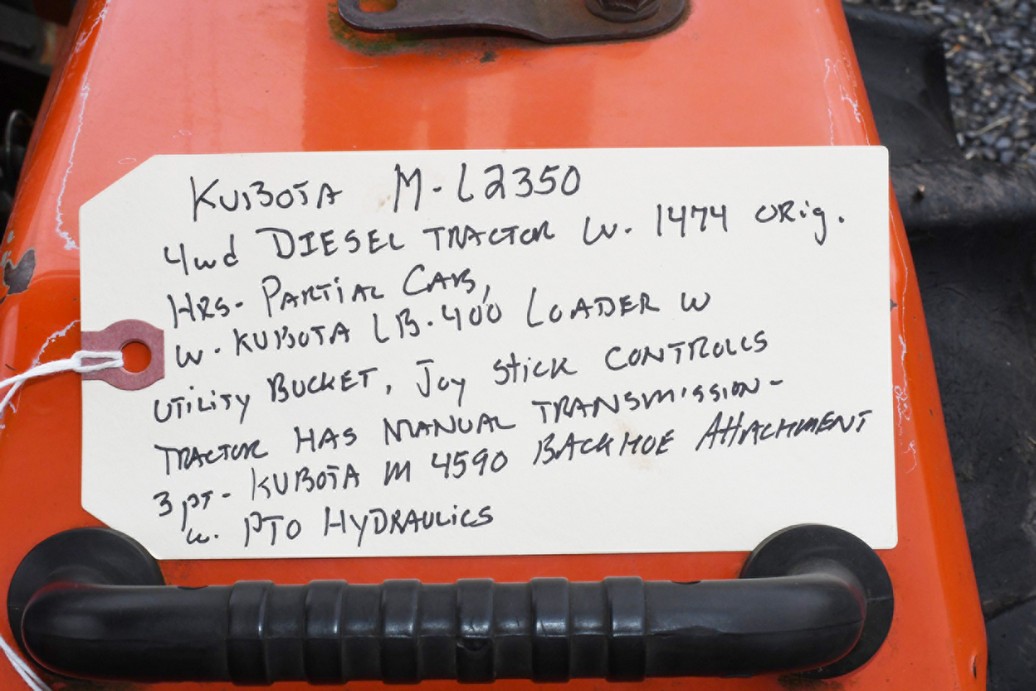 KUBOTA M-L2350
4wd DIESEL TRACTOR W. 1474 ORig.
HRS- PARTIAL CAB,
W. KUBOTA LB-400 LOADER W
UTILITY BUCKET, JOY STICK CONTROLLS
TRACTOR HAS MANUAL TRANSMISSION-
3 PT- KUBOTA M 4590 BACKHOE ATTACHMENT
W. PTO HYDRAULICS